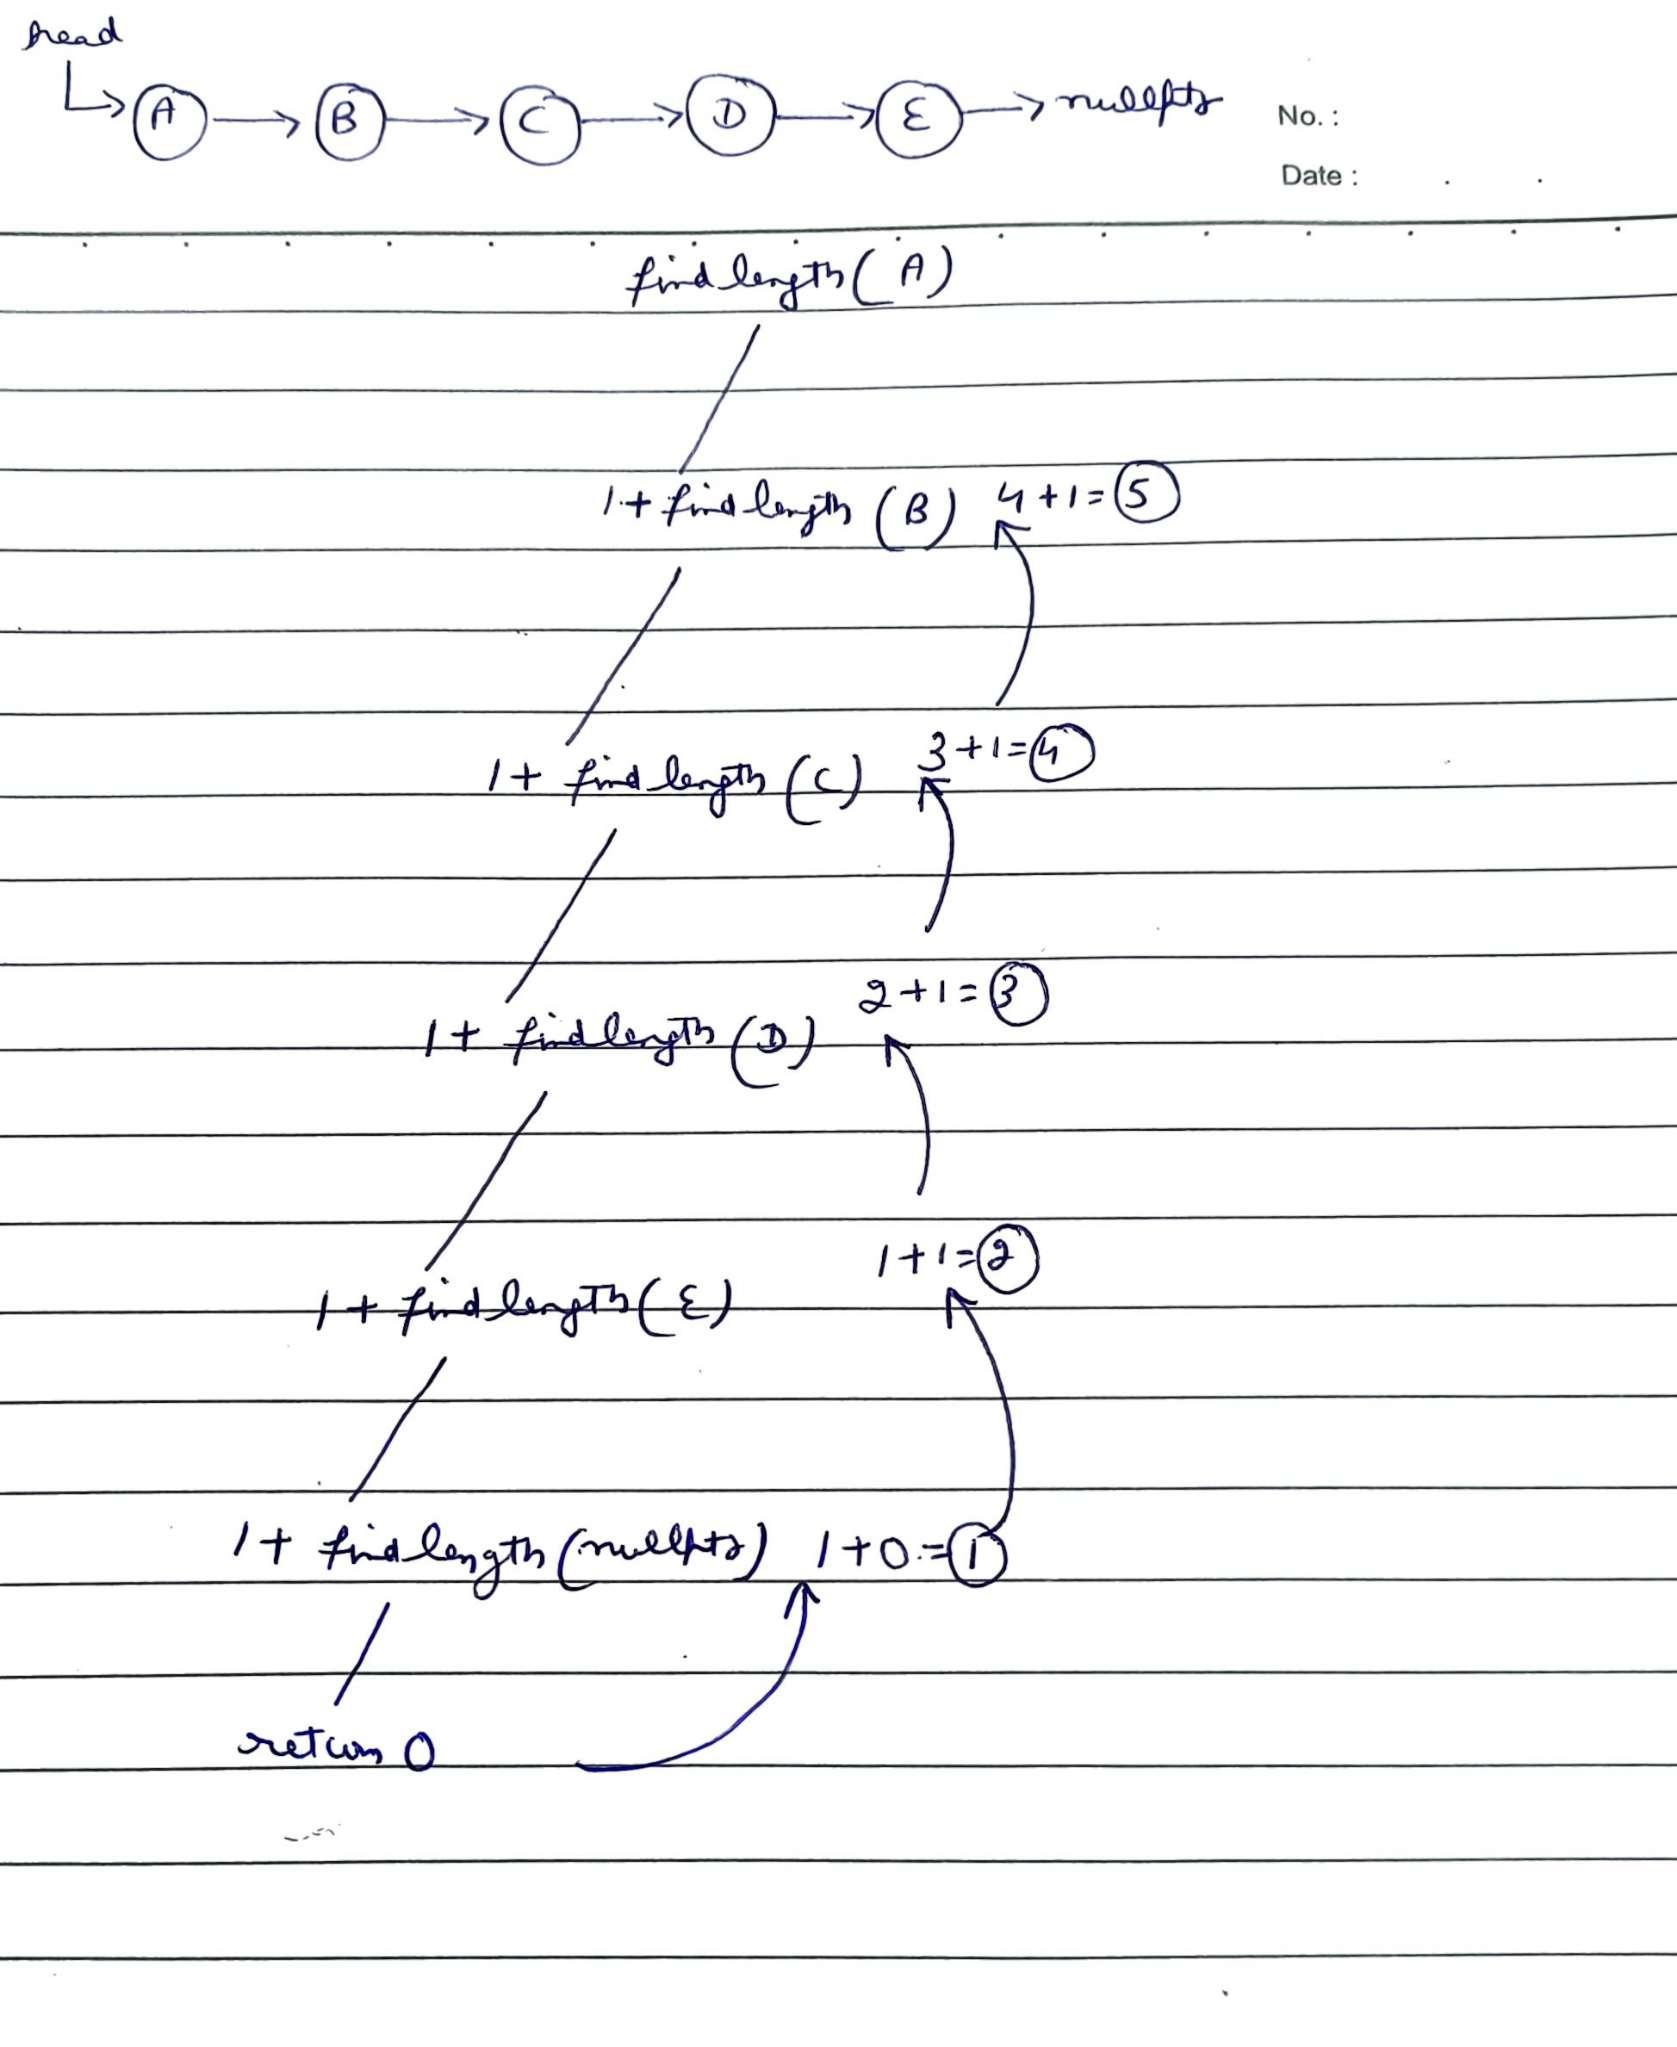 head
A B C D E nullptr
No. :
Date :
find length ( A )
1 + find length ( B ) 4 + 1 = 5
3 + 1 = 4
1 + find length ( C )
2 + 1 = 3
1 + find length ( D )
1 + 1 = 2
1 + find length ( E )
1 + find length ( nullptr ) 1 + 0 = 1
return 0